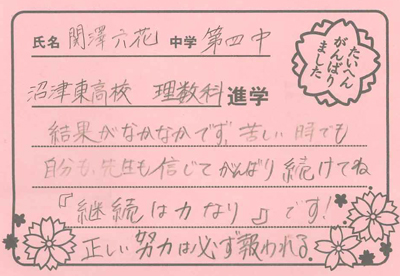 氏名 関澤六花 中学 第四中
たいへん
がんばり
ました
沼津東高校 理数科 進学
結果がなかなかでず、苦しい時でも
自分も、先生も信じてがんばり続けてね
『継続は力なり』です!
正しい努力は必ず報われる